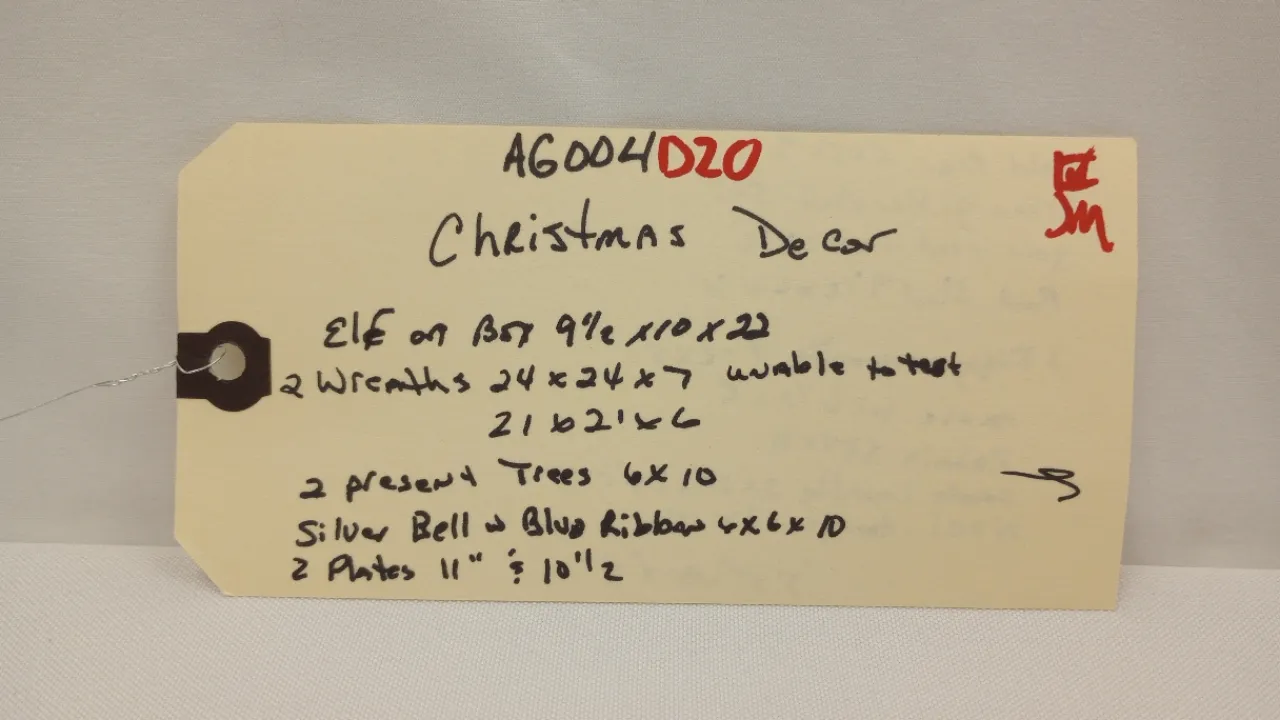 AG004D20
Christmas Decor
Elf on Box 9 1/2 x 10 x 22
2 Wreaths 24 x 24 x 7 unable to test
21 x 21 x 6
2 present Trees 6 x 10
Silver Bell w Blue Ribbon 6 x 6 x 10
2 Plates 11" & 10 1/2